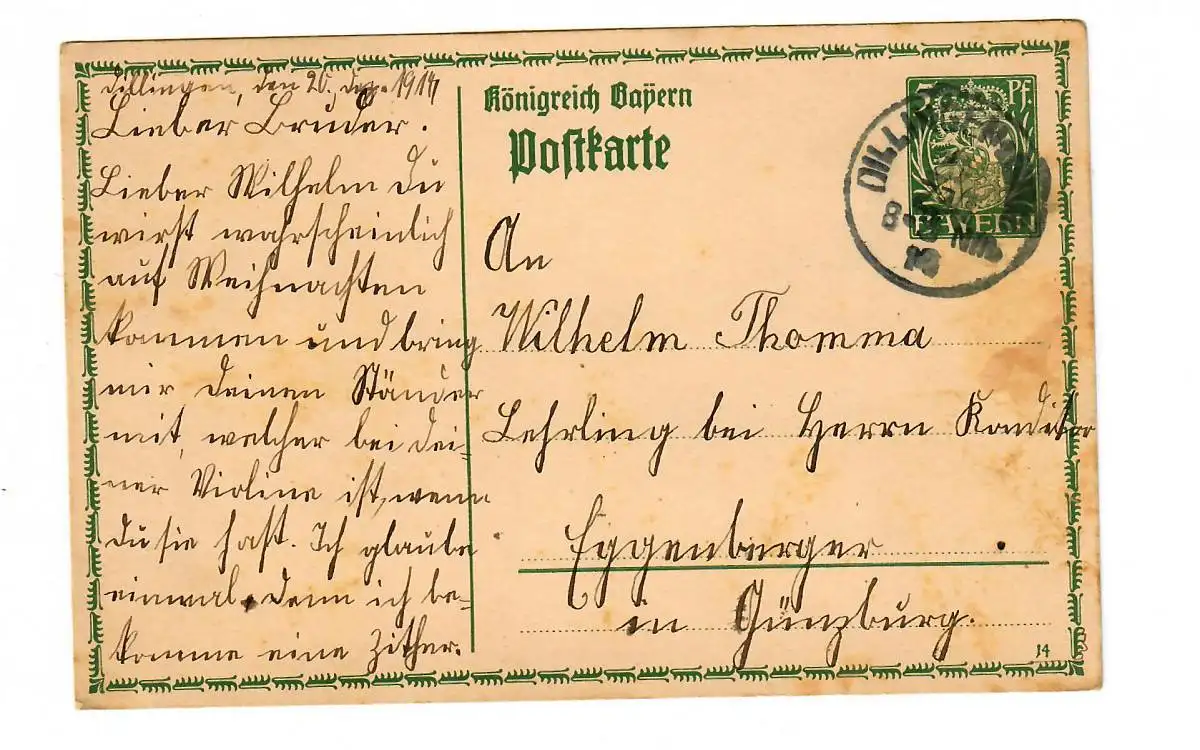 Dillingen, den 20. Dez. 1914
Lieber Bruder.
Lieber Wilhelm du
wirst wahrscheinlich
auf Weihnachten
kommen und bring
mir deinen Ständer
mit, welcher bei dei-
ner Violine ist, wenn
du sie hast. Ich glaube
einmal, denn ich be-
komme eine Zither.
Königreich Bayern
Postkarte
5 Pf.
BAYERN
DILLINGEN
8-9 Nm.
14
An
Wilhelm Thomma
Lehrling bei Herrn Konditor
Eggenberger
in Günzburg.
14